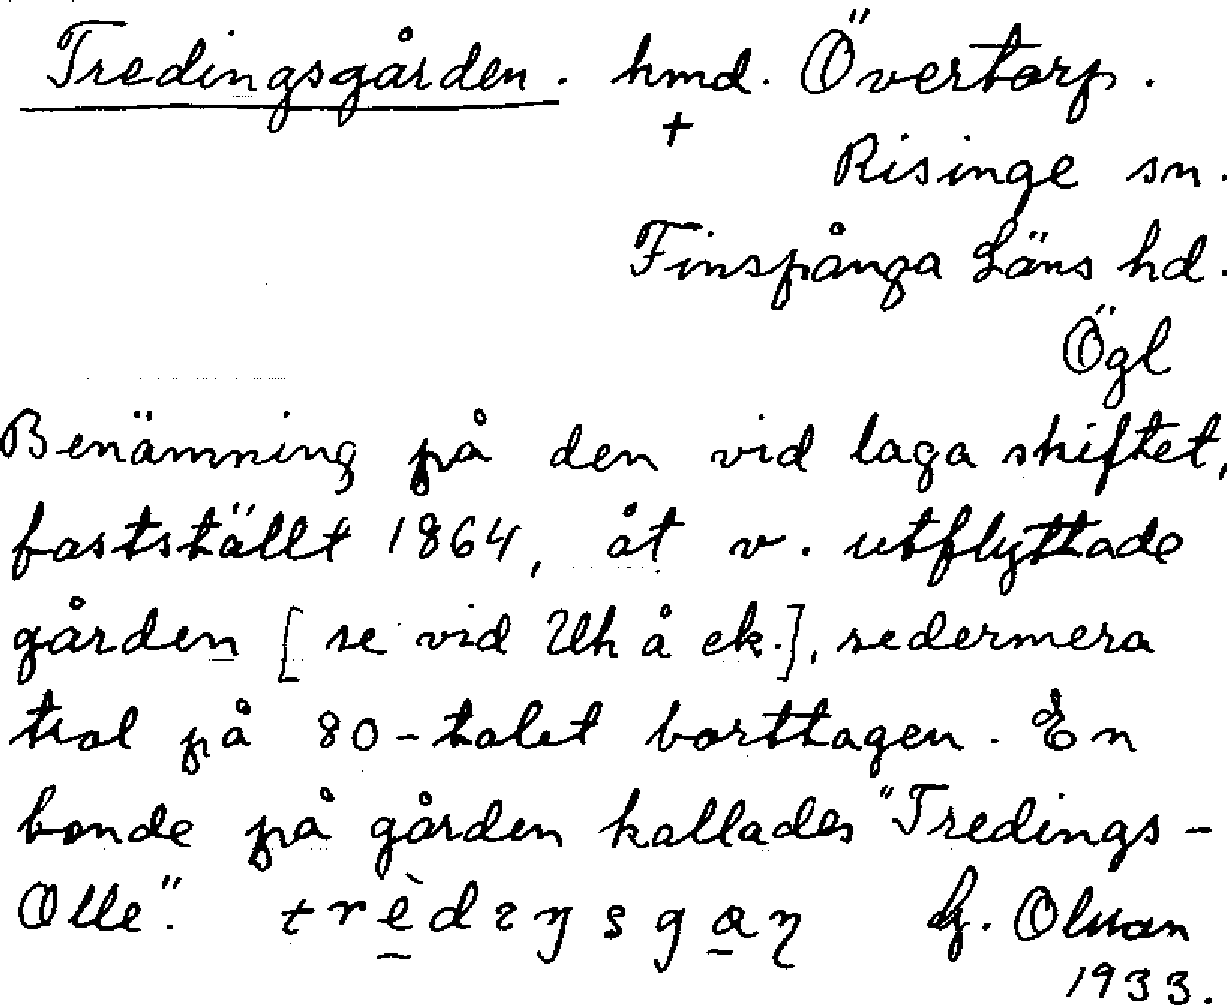 Tredingsgården. hmd. Övertorp.
+
Risinge sn.
Finspånga Läns hd.
Ögl
Benämning på den vid laga skiftet,
fastställt 1864, åt v. utflyttade
gården [se vid Uh å ek.], sedermera
trol på 80-talet borttagen. En
bonde på gården kallades "Tredings-
Olle". Olsson
1933.